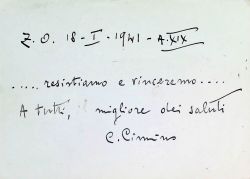 Z. O. 18 - I - 1941 - A. XIX
..... resistiamo e vinceremo.....
A tutti, il migliore dei saluti
C. Cimino